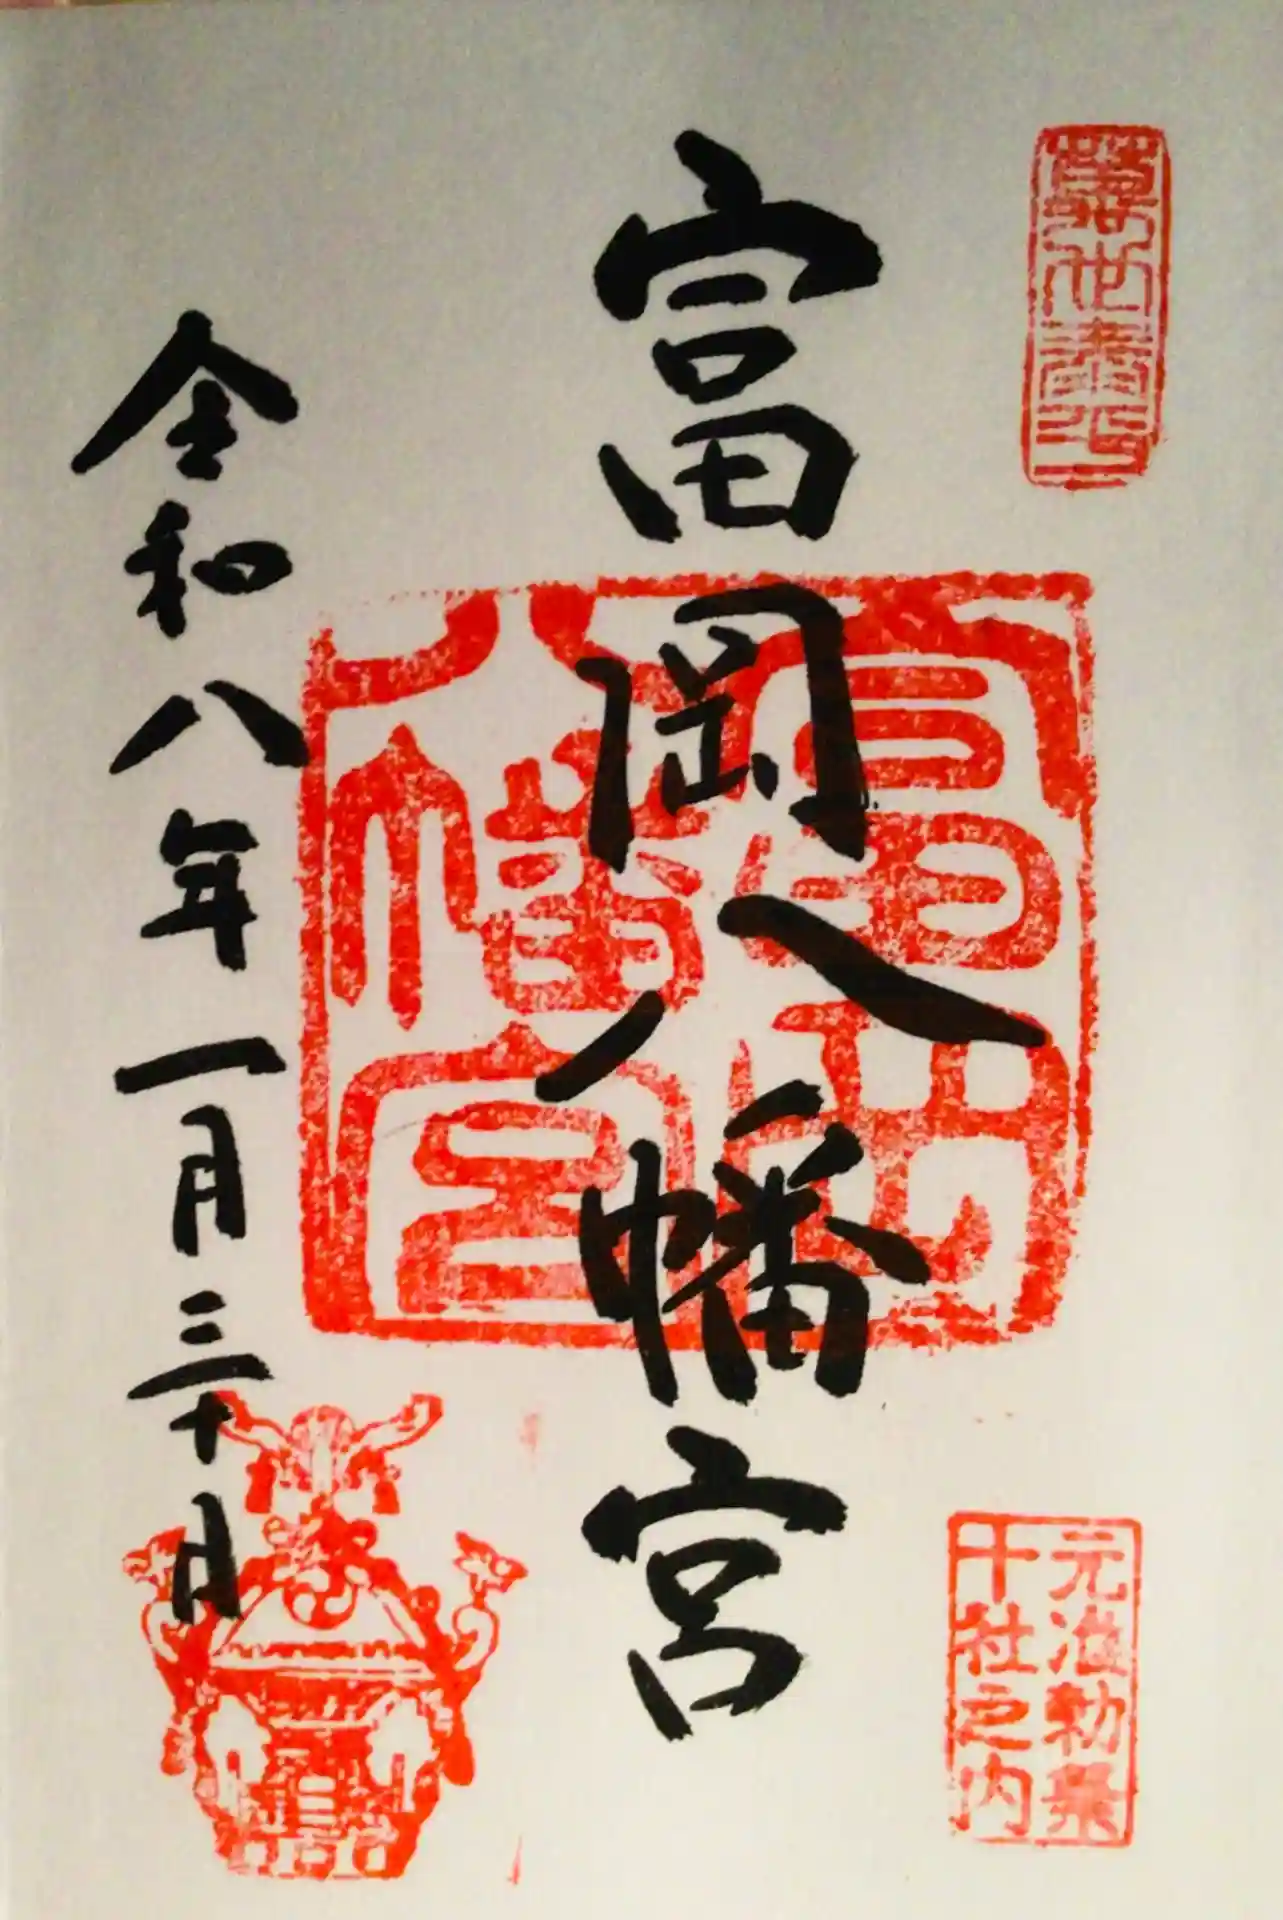 萬世泰平
富岡八幡宮
富岡
八幡宮
元治勅祭
十社之内
令和八年一月三十日